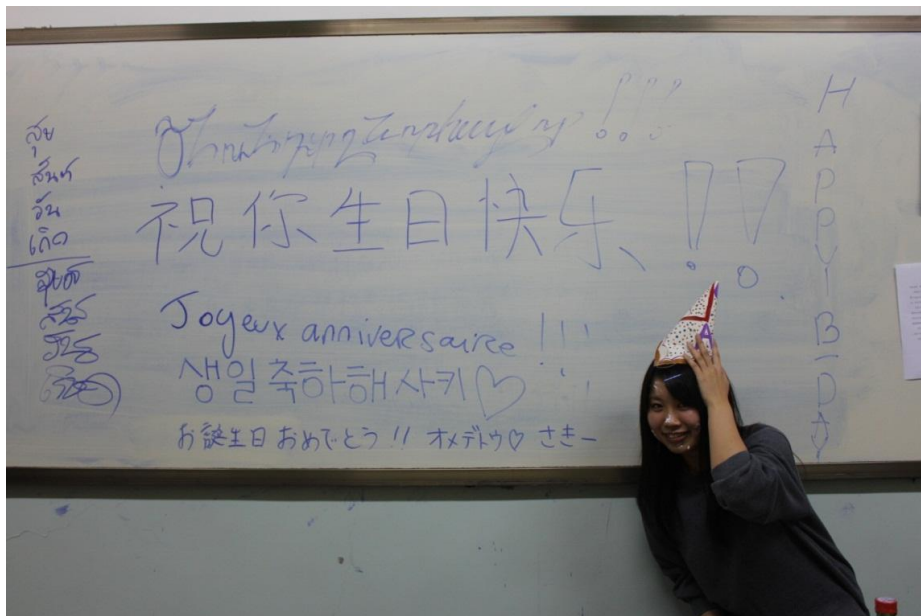 สุข
สันต์
วัน
เกิด
祝你生日快乐、!!
Joyeux anniversaire !!!
생일축하해사키♡
お誕生日おめでとう!! オメデトウ♡ さきー
HAPPY!
B-DAY